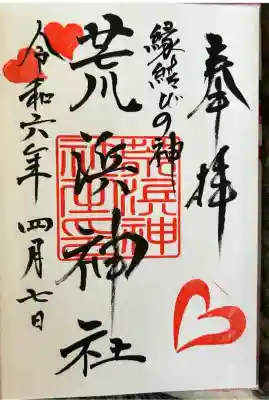 奉拝
縁結びの神
荒浜神社
荒浜神社之印
令和六年 四月七日